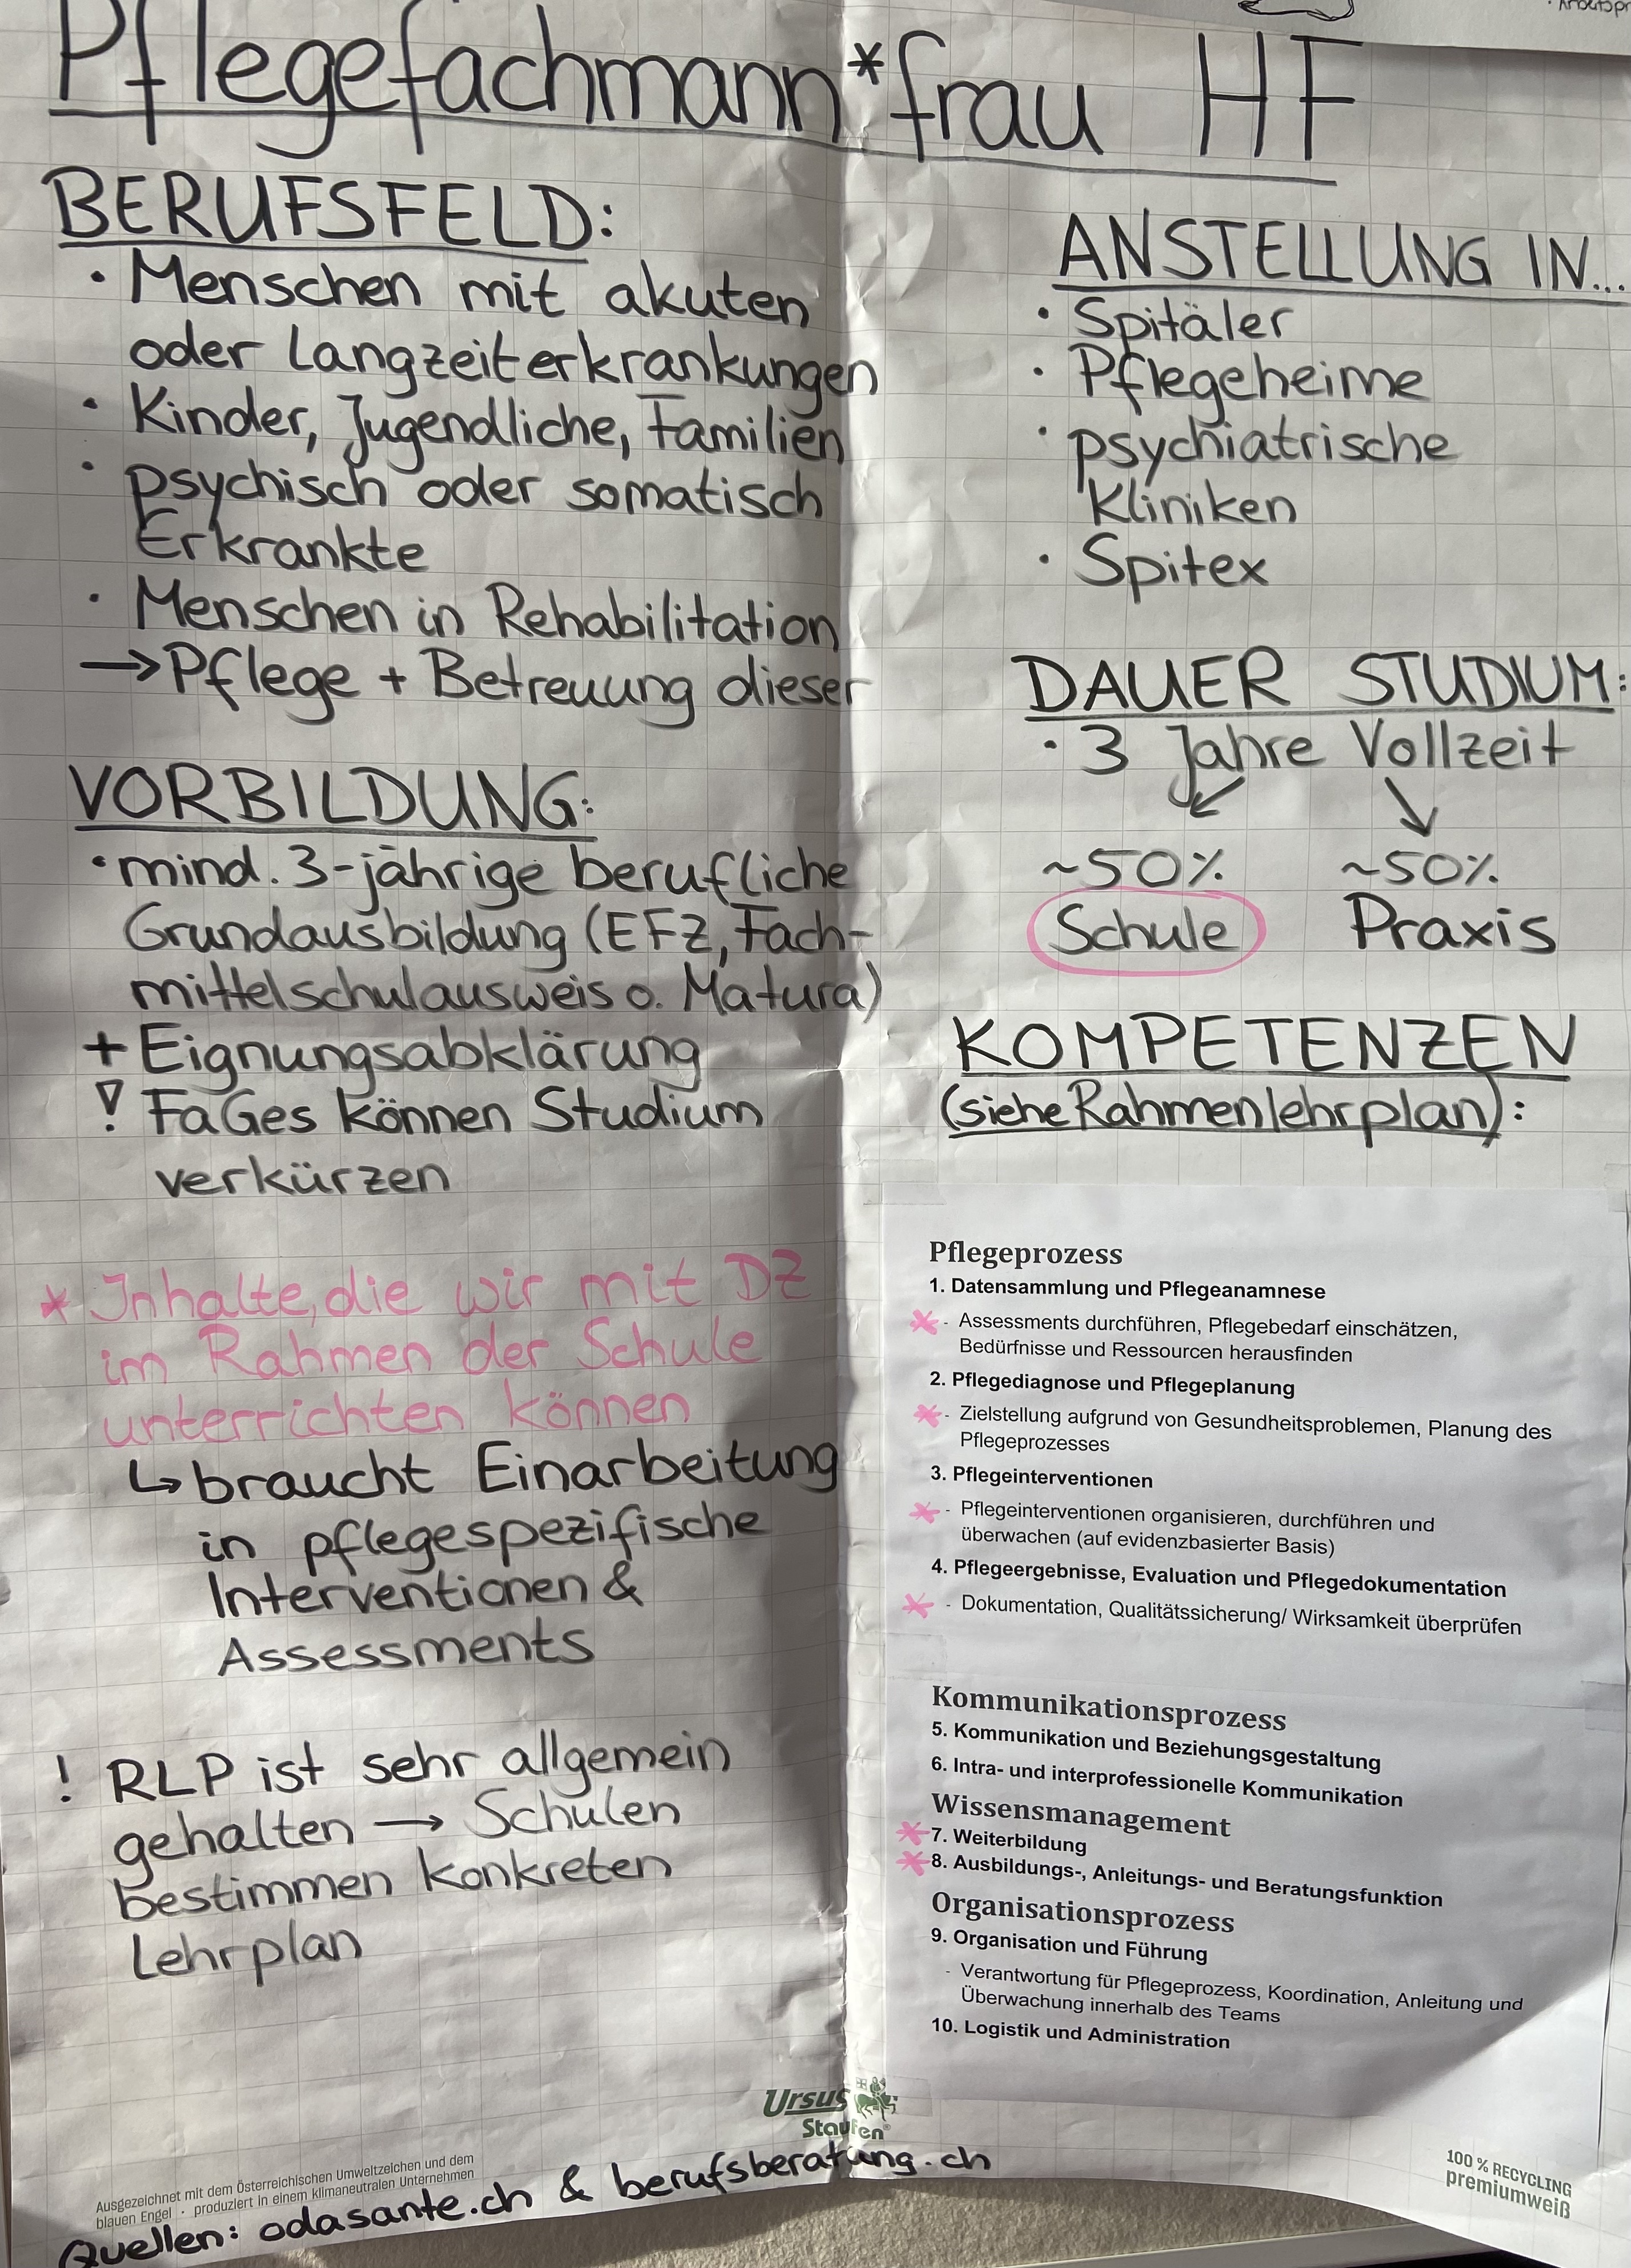 Pflegefachmann*frau HF
BERUFSFELD:
· Menschen mit akuten
oder Langzeiterkrankungen
· Kinder, Jugendliche, Familien
· psychisch oder somatisch
Erkrankte
· Menschen in Rehabilitation
→ Pflege + Betreuung dieser
VORBILDUNG:
· mind. 3-jährige berufliche
Grundausbildung (EFZ, Fach-
mittelschulausweis o. Matura)
+ Eignungsabklärung
! FaGes können Studium
verkürzen
* Inhalte, die wir mit DZ
im Rahmen der Schule
unterrichten können
↳ braucht Einarbeitung
in pflegespezifische
Interventionen &
Assessments
! RLP ist sehr allgemein
gehalten → Schulen
bestimmen konkreten
Lehrplan
ANSTELLUNG IN...
· Spitäler
· Pflegeheime
· psychiatrische
Kliniken
· Spitex
DAUER STUDIUM:
· 3 Jahre Vollzeit
~50% ~50%
Schule Praxis
KOMPETENZEN
(siehe Rahmenlehrplan):
Pflegeprozess
1. Datensammlung und Pflegeanamnese
* - Assessments durchführen, Pflegebedarf einschätzen,
Bedürfnisse und Ressourcen herausfinden
2. Pflegediagnose und Pflegeplanung
* - Zielstellung aufgrund von Gesundheitsproblemen, Planung des
Pflegeprozesses
3. Pflegeinterventionen
* - Pflegeinterventionen organisieren, durchführen und
überwachen (auf evidenzbasierter Basis)
4. Pflegeergebnisse, Evaluation und Pflegedokumentation
* - Dokumentation, Qualitätssicherung/ Wirksamkeit überprüfen
Kommunikationsprozess
5. Kommunikation und Beziehungsgestaltung
6. Intra- und interprofessionelle Kommunikation
Wissensmanagement
* 7. Weiterbildung
* 8. Ausbildungs-, Anleitungs- und Beratungsfunktion
Organisationsprozess
9. Organisation und Führung
- Verantwortung für Pflegeprozess, Koordination, Anleitung und
Überwachung innerhalb des Teams
10. Logistik und Administration
Ursus
Staufen®
Ausgezeichnet mit dem Österreichischen Umweltzeichen und dem
blauen Engel · produziert in einem klimaneutralen Unternehmen
100 % RECYCLING
premiumweiß
Quellen: odasante.ch & berufsberatung.ch